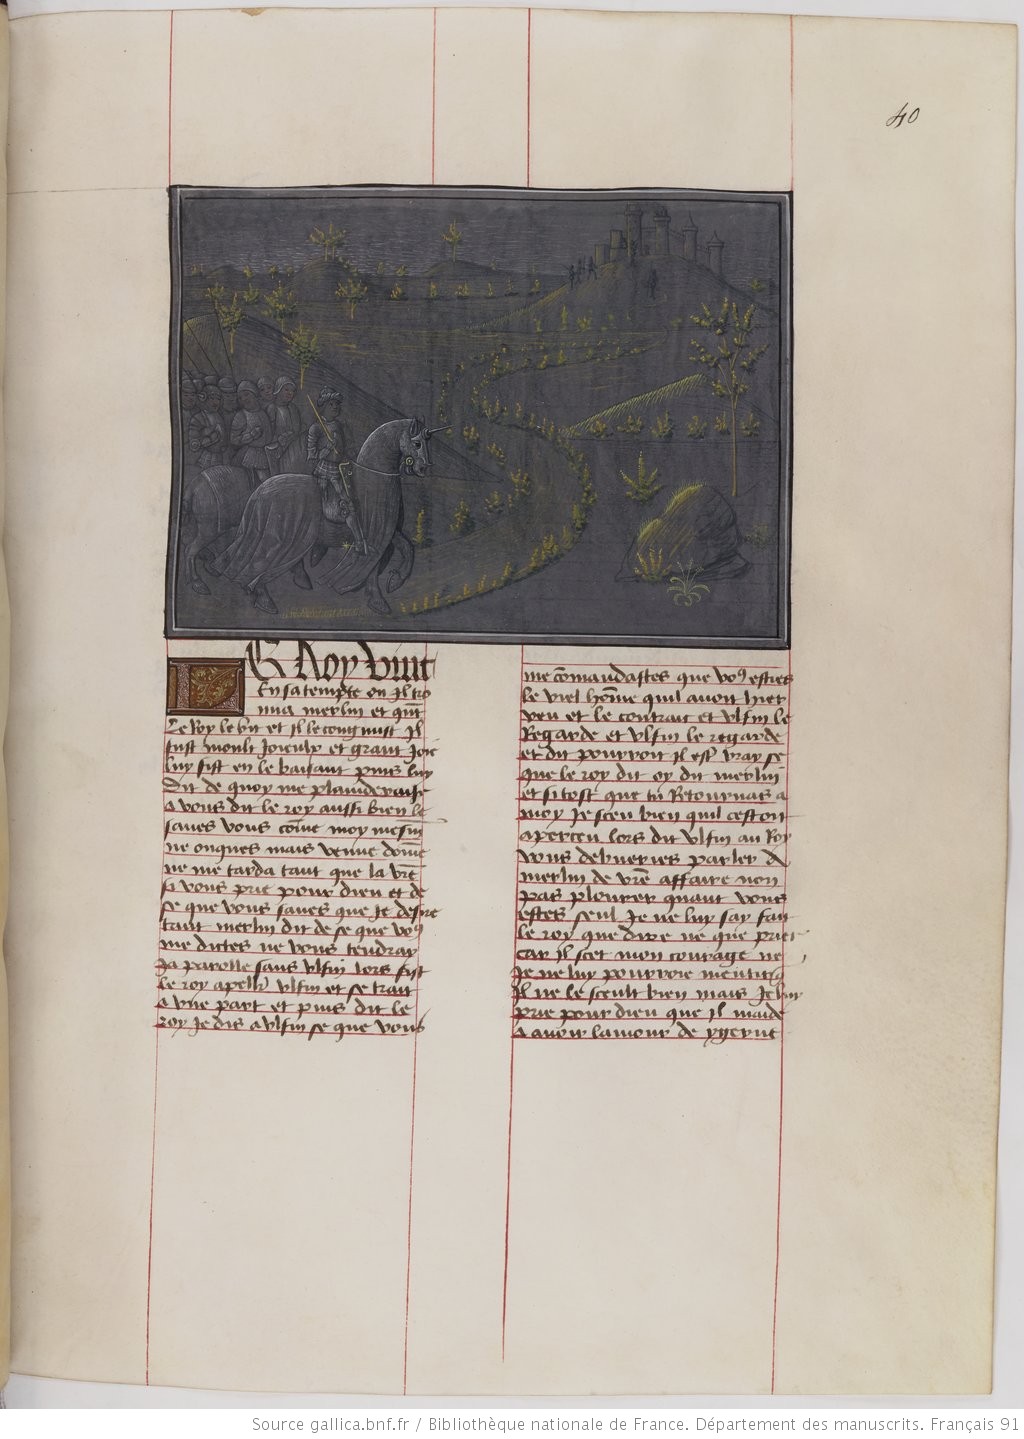 40
LE Roy vint
En sa tempte ou il tro
uua merlin et qñt
Le Roy le vit et il le congnust Il
fust moult Joieulx et grant Joie
luy fist en le baisant puis luy
dit de quoy me plainderaise
a vous dit le roy aussi bien le
saues vous cõme moy mesm̃
ne onques mais venue dõme
ne me tarda tant que la vr̃e
si vous prie pour dieu et de
se que vous saues que Je desire
tant merlin dit de se que voꝰ
me dictes ne vous tendray
Ja parolle sans vlfin lors fist
le roy apeller vlfin et se trait
a vne part et puis dit le
roy Je dis a vlfin se que vous
me cõmandastes que voꝰ esties
le viel hõme quil auoit hier
veu et le contrait et vlfin le
Regarde et vlfin le regarde
et dit pourroit il estr̃ vray se
que le roy dit oy dit merlin
et si tost que tu Retournas a
moy Je sceu bien quil cestoit
aperceu lors dit vlfin au Roy
vous deburies parler a
merlin de vr̃e affaire non
pas plourer quant vous
estes seul Je ne luy say fait
le roy que dire ne que prier
car il scet mon courage ne
Je ne luy pourroie mentir q̃
Il ne le sceult bien mais Je luy
prie pour dieu que Il maide
a auoir lamour de ygerne
Source gallica.bnf.fr / Bibliothèque nationale de France. Département des manuscrits. Français 91